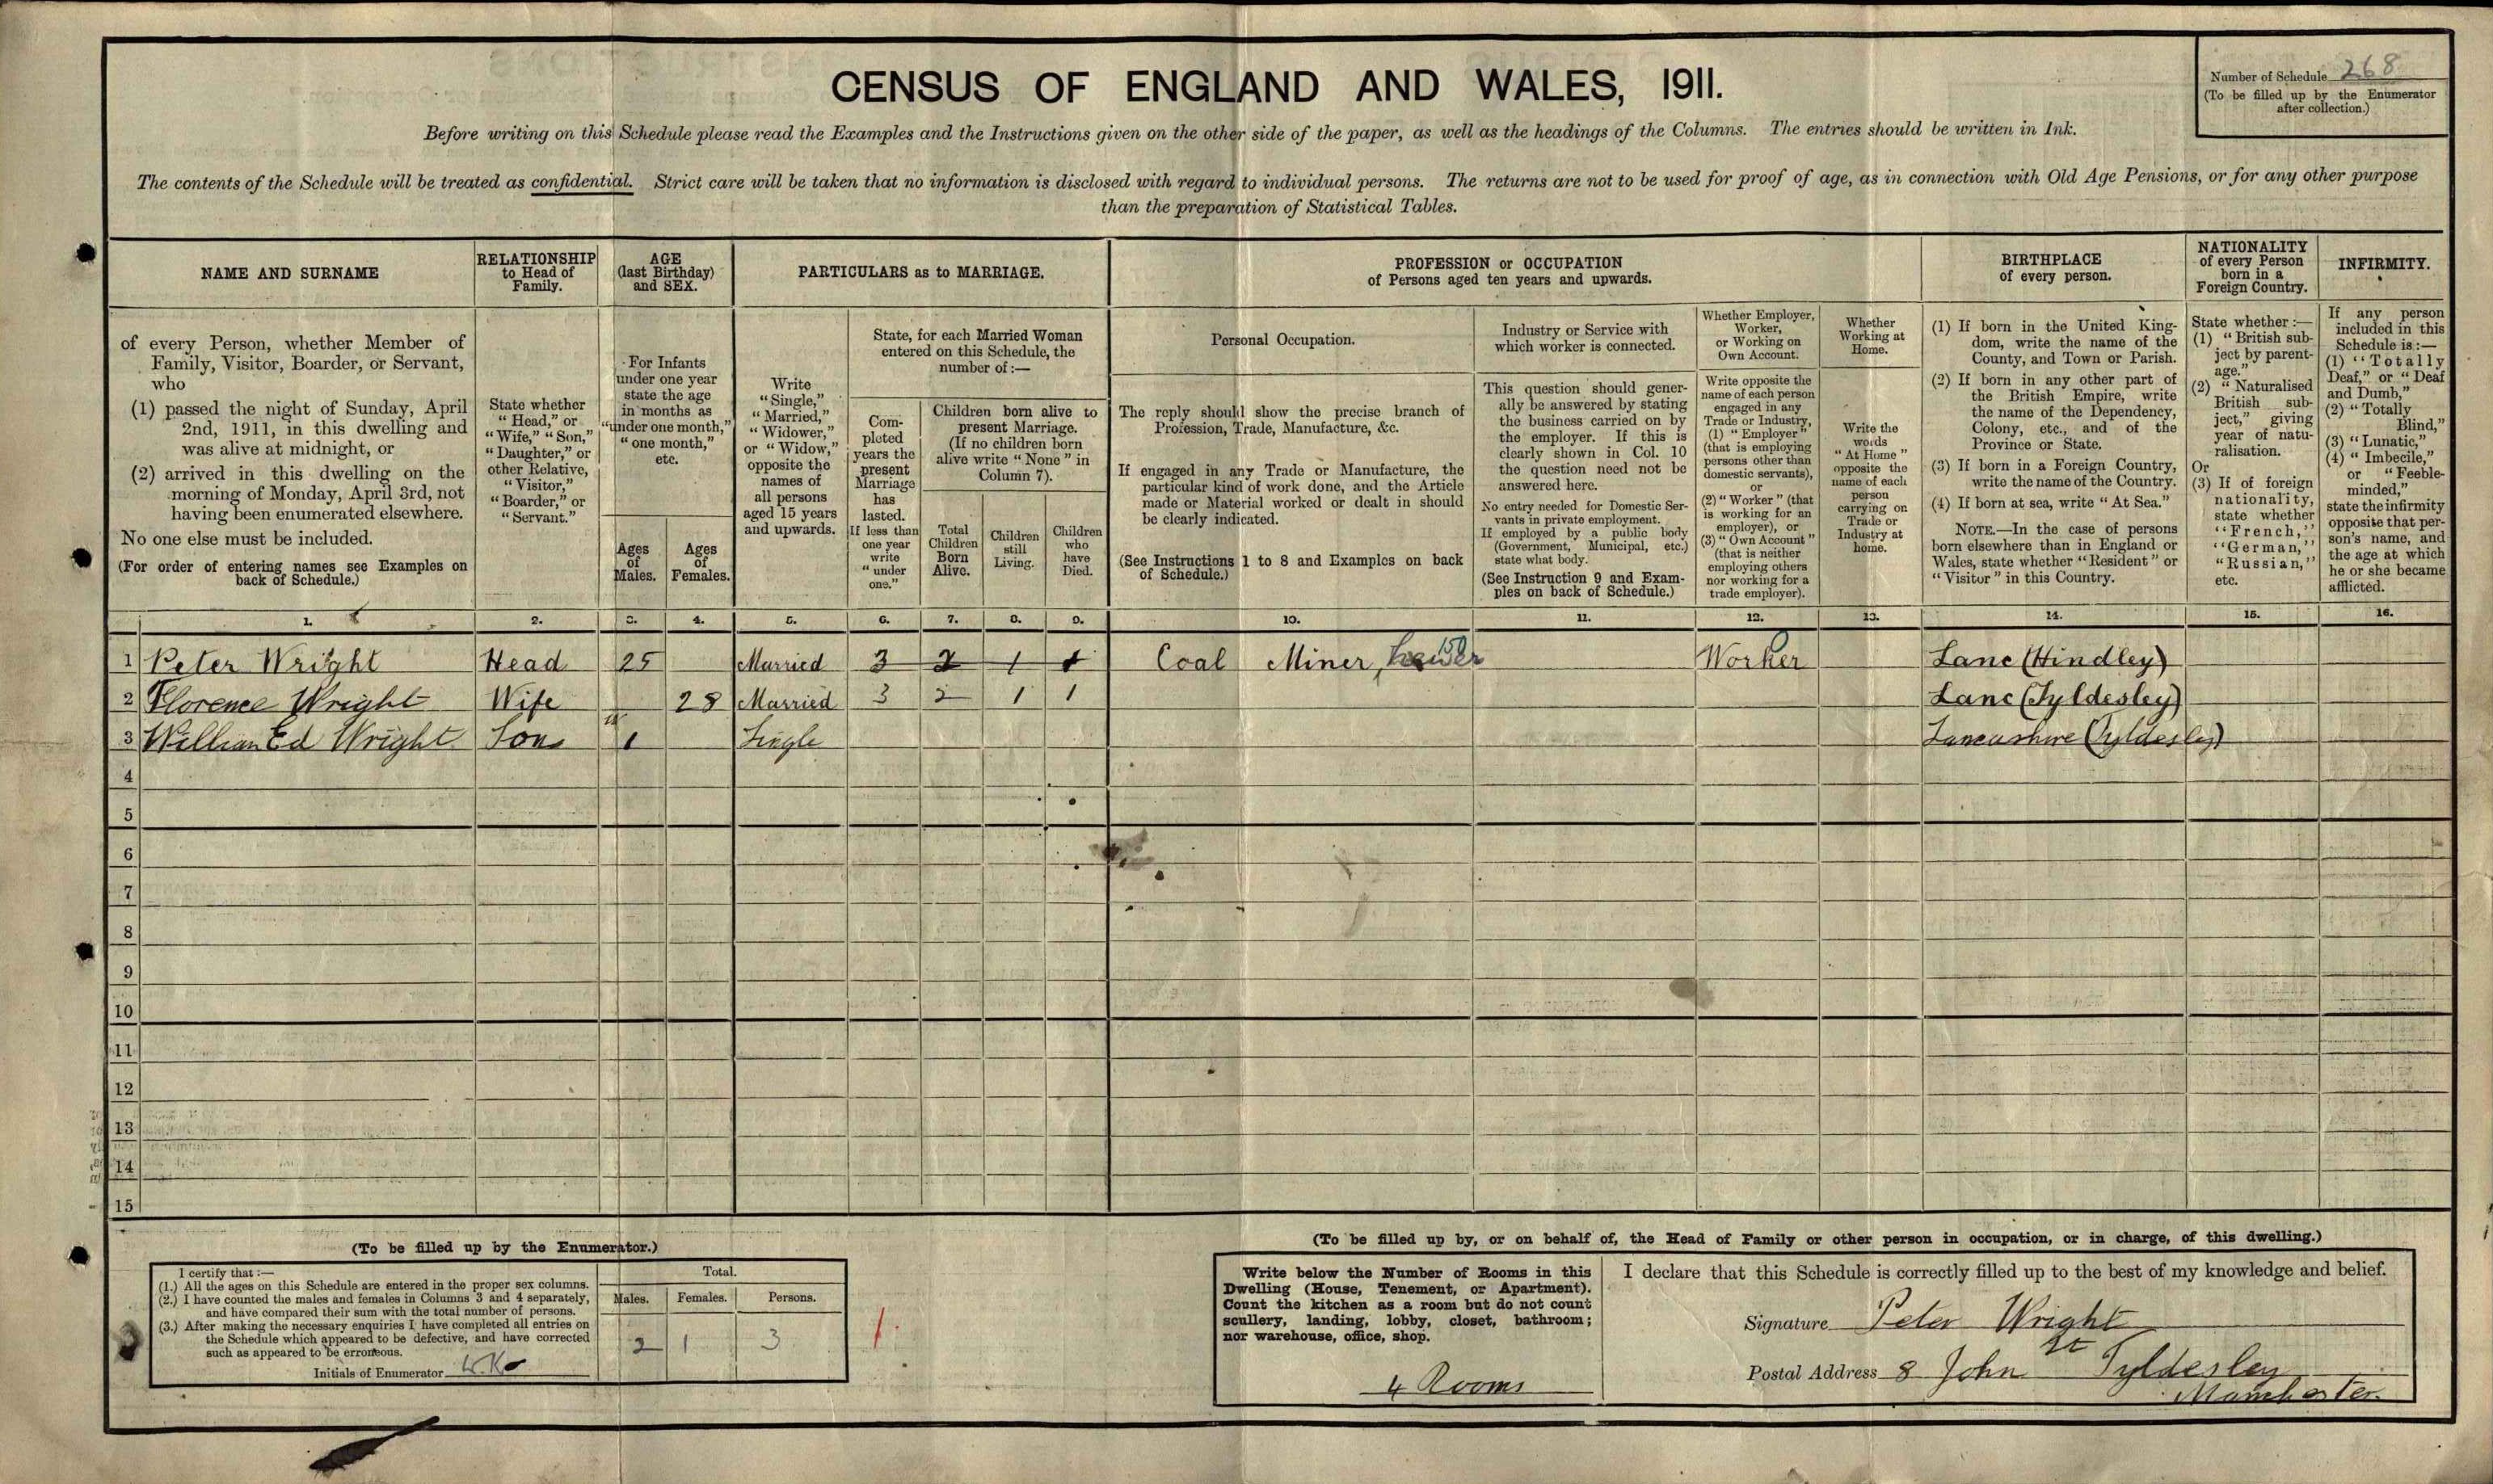 CENSUS OF ENGLAND AND WALES, 1911.
Number of Schedule 268
(To be filled up by the Enumerator
after collection.)
Before writing on this Schedule please read the Examples and the Instructions given on the other side of the paper, as well as the headings of the Columns. The entries should be written in Ink.
The contents of the Schedule will be treated as confidential. Strict care will be taken that no information is disclosed with regard to individual persons. The returns are not to be used for proof of age, as in connection with Old Age Pensions, or for any other purpose
than the preparation of Statistical Tables.
NAME AND SURNAME
of every Person, whether Member of
Family, Visitor, Boarder, or Servant,
who
(1) passed the night of Sunday, April
2nd, 1911, in this dwelling and
was alive at midnight, or
(2) arrived in this dwelling on the
morning of Monday, April 3rd, not
having been enumerated elsewhere.
No one else must be included.
(For order of entering names see Examples on
back of Schedule.)
RELATIONSHIP
to Head of
Family.
State whether
"Head," or
"Wife," "Son,"
"Daughter," or
other Relative,
"Visitor,"
"Boarder," or
"Servant."
AGE
(last Birthday)
and SEX.
For Infants
under one year
state the age
in months as
"under one month,"
"one month,"
etc.
Ages
of
Males.
Ages
of
Females.
PARTICULARS as to MARRIAGE.
Write
"Single,"
"Married,"
"Widower,"
or "Widow,"
opposite the
names of
all persons
aged 15 years
and upwards.
State, for each Married Woman
entered on this Schedule, the
number of:—
Com-
pleted
years the
present
Marriage
has
lasted.
If less than
one year
write
"under
one."
Children born alive to
present Marriage.
(If no children born
alive write "None" in
Column 7).
Total
Children
Born
Alive.
Children
still
Living.
Children
who
have
Died.
PROFESSION or OCCUPATION
of Persons aged ten years and upwards.
Personal Occupation.
The reply should show the precise branch of
Profession, Trade, Manufacture, &c.
If engaged in any Trade or Manufacture, the
particular kind of work done, and the Article
made or Material worked or dealt in should
be clearly indicated.
(See Instructions 1 to 8 and Examples on back
of Schedule.)
Industry or Service with
which worker is connected.
This question should gener-
ally be answered by stating
the business carried on by
the employer. If this is
clearly shown in Col. 10
the question need not be
answered here.
No entry needed for Domestic Ser-
vants in private employment.
If employed by a public body
(Government, Municipal, etc.)
state what body.
(See Instruction 9 and Exam-
ples on back of Schedule.)
Whether Employer,
Worker,
or Working on
Own Account.
Write opposite the
name of each person
engaged in any
Trade or Industry,
(1) "Employer"
(that is employing
persons other than
domestic servants),
or
(2) "Worker" (that
is working for an
employer), or
(3) "Own Account"
(that is neither
employing others
nor working for a
trade employer).
Whether
Working at
Home.
Write the
words
"At Home"
opposite the
name of each
person
carrying on
Trade or
Industry at
home.
BIRTHPLACE
of every person.
(1) If born in the United King-
dom, write the name of the
County, and Town or Parish.
(2) If born in any other part of
the British Empire, write
the name of the Dependency,
Colony, etc., and of the
Province or State.
(3) If born in a Foreign Country,
write the name of the Country.
(4) If born at sea, write "At Sea."
NOTE.—In the case of persons
born elsewhere than in England or
Wales, state whether "Resident" or
"Visitor" in this Country.
NATIONALITY
of every Person
born in a
Foreign Country.
State whether:—
(1) "British sub-
ject by parent-
age."
(2) "Naturalised
British sub-
ject," giving
year of natu-
ralisation.
Or
(3) If of foreign
nationality,
state whether
"French,"
"German,"
"Russian,"
etc.
INFIRMITY.
If any person
included in this
Schedule is:—
(1) "Totally
Deaf," or "Deaf
and Dumb,"
(2) "Totally
Blind,"
(3) "Lunatic,"
(4) "Imbecile,"
or "Feeble-
minded,"
state the infirmity
opposite that per-
son's name, and
the age at which
he or she became
afflicted.
1. 2. 3. 4. 5. 6. 7. 8. 9. 10. 11. 12. 13. 14. 15. 16.
1 Peter Wright Head 25 Married 3 2 1 1 Coal Miner, hewer 150 Worker Lanc (Hindley)
2 Florence Wright Wife 28 Married 3 2 1 1 Lanc (Tyldesley)
3 William Ed Wright Son 1 Single Lancashire (Tyldesley)
4
5
6
7
8
9
10
11
12
13
14
15
(To be filled up by the Enumerator.)
I certify that:—
(1.) All the ages on this Schedule are entered in the proper sex columns.
(2.) I have counted the males and females in Columns 3 and 4 separately,
and have compared their sum with the total number of persons.
(3.) After making the necessary enquiries I have completed all entries on
the Schedule which appeared to be defective, and have corrected
such as appeared to be erroneous.
Initials of Enumerator
Total.
Males. Females. Persons.
2 1 3
(To be filled up by, or on behalf of, the Head of Family or other person in occupation, or in charge, of this dwelling.)
Write below the Number of Rooms in this
Dwelling (House, Tenement, or Apartment).
Count the kitchen as a room but do not count
scullery, landing, lobby, closet, bathroom;
nor warehouse, office, shop.
4 Rooms
I declare that this Schedule is correctly filled up to the best of my knowledge and belief.
Signature Peter Wright
Postal Address 8 John St Tyldesley
Manchester.